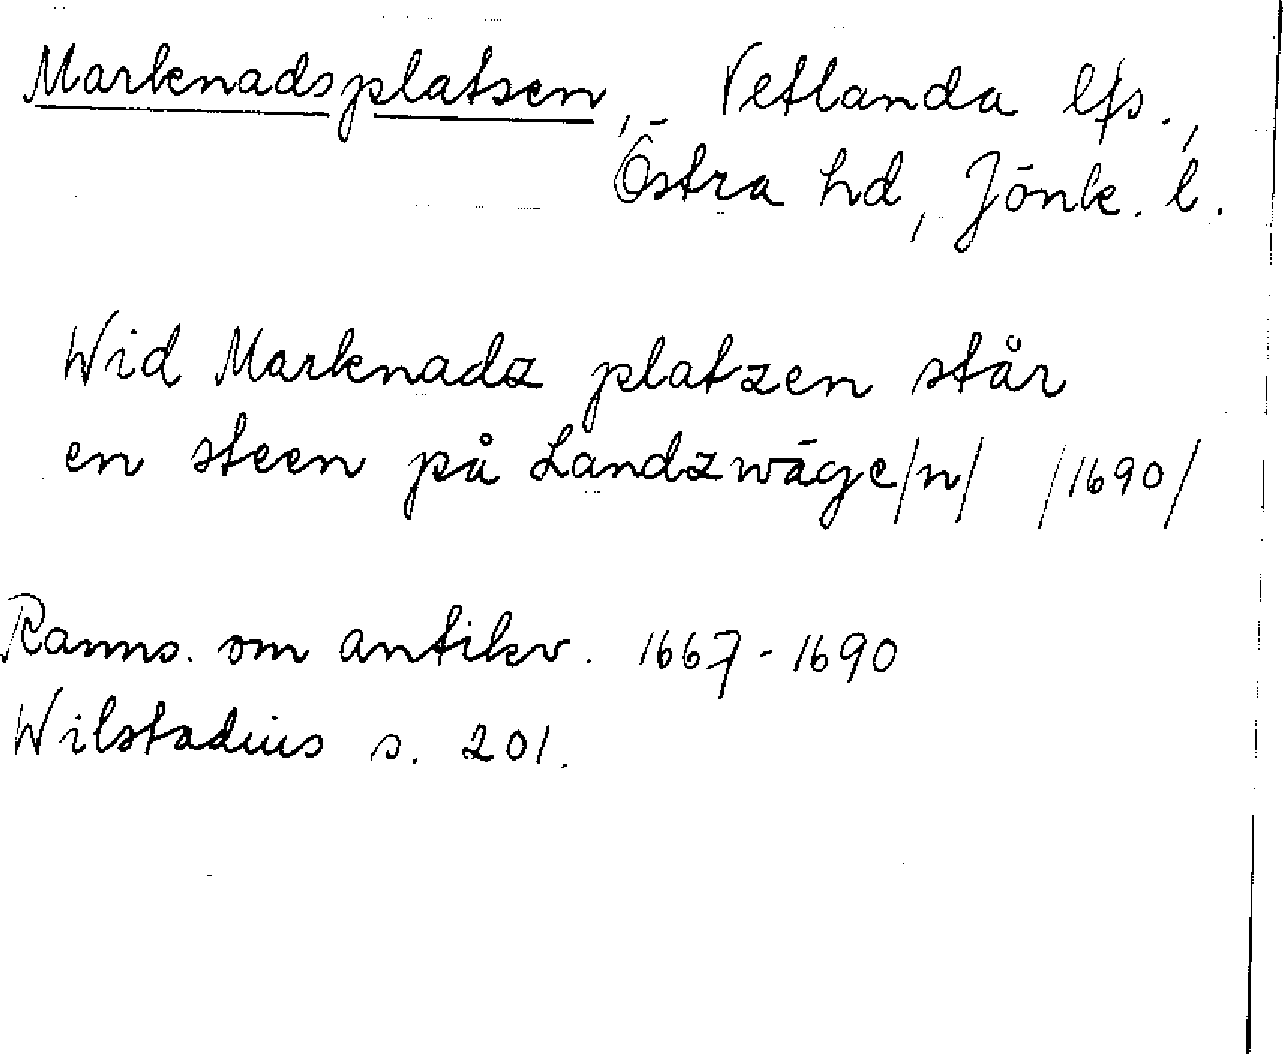 Marknadsplatsen, Vetlanda lfs.,
Östra hd, Jönk. l.
Wid Marknadz platzen står
en steen på Landzwäge/n/ /1690/
Ranns. om antikv. 1667-1690
Wilstadius s. 201.